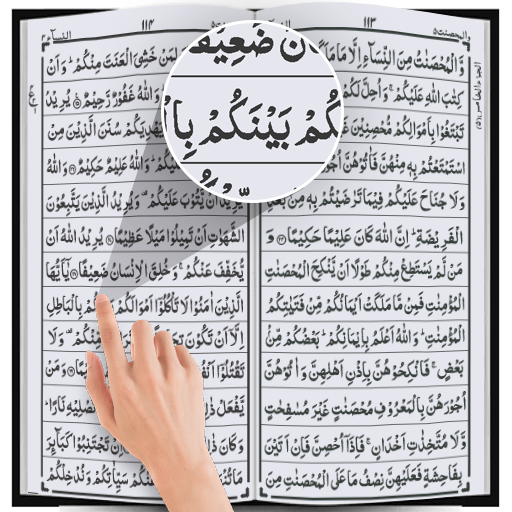 والمحصنت ٥
١١٣
وَّالْمُحْصَنٰتُ مِنَ النِّسَآءِ اِلَّا مَا مَلَ
كِتٰبَ اللّٰهِ عَلَيْكُمْ ۚ وَاُحِلَّ لَكُمْ
تَبْتَغُوْا بِاَمْوَالِكُمْ مُّحْصِنِيْنَ
اسْتَمْتَعْتُمْ بِهٖ مِنْهُنَّ فَاٰتُوْهُنَّ
وَلَا جُنَاحَ عَلَيْكُمْ فِيْمَا تَرٰضَيْتُمْ بِهٖ مِنْۢ بَعْدِ
الْفَرِيْضَةِ ؕ اِنَّ اللّٰهَ كَانَ عَلِيْمًا حَكِيْمًا ۝ وَ
مَنْ لَّمْ يَسْتَطِعْ مِنْكُمْ طَوْلًا اَنْ يَّنْكِحَ الْمُحْصَنٰتِ
الْمُؤْمِنٰتِ فَمِنْ مَّا مَلَكَتْ اَيْمَانُكُمْ مِّنْ فَتَيٰتِكُمُ
الْمُؤْمِنٰتِ ؕ وَاللّٰهُ اَعْلَمُ بِاِيْمَانِكُمْ ؕ بَعْضُكُمْ مِّنْۢ
بَعْضٍ ۚ فَانْكِحُوْهُنَّ بِاِذْنِ اَهْلِهِنَّ وَاٰتُوْهُنَّ
اُجُوْرَهُنَّ بِالْمَعْرُوْفِ مُحْصَنٰتٍ غَيْرَ مُسٰفِحٰتٍ
وَّلَا مُتَّخِذٰتِ اَخْدَانٍ ۚ فَاِذَآ اُحْصِنَّ فَاِنْ اَتَيْنَ
بِفَاحِشَةٍ فَعَلَيْهِنَّ نِصْفُ مَا عَلَى الْمُحْصَنٰتِ مِنَ
١١٤
النسآء ٤
لِمَنْ خَشِيَ الْعَنَتَ مِنْكُمْ ؕ وَاَنْ
وَاللّٰهُ غَفُوْرٌ رَّحِيْمٌ ۝ يُرِيْدُ
يَهْدِيَكُمْ سُنَنَ الَّذِيْنَ مِنْ
وَاللّٰهُ عَلِيْمٌ حَكِيْمٌ ۝ وَاللّٰهُ
يُرِيْدُ اَنْ يَّتُوْبَ عَلَيْكُمْ ۫ وَيُرِيْدُ الَّذِيْنَ يَتَّبِعُوْنَ
الشَّهَوٰتِ اَنْ تَمِيْلُوْا مَيْلًا عَظِيْمًا ۝ يُرِيْدُ اللّٰهُ اَنْ
يُّخَفِّفَ عَنْكُمْ ۚ وَخُلِقَ الْاِنْسَانُ ضَعِيْفًا ۝ يٰٓاَيُّهَا
الَّذِيْنَ اٰمَنُوْا لَا تَاْكُلُوْٓا اَمْوَالَكُمْ بِالْبَاطِلِ
اِلَّآ اَنْ تَكُوْنَ تِجَارَ مِّنْكُمْ ۫ وَلَا
تَقْتُلُوْٓا اَنْفُ ۝ وَمَنْ
يَّفْعَلْ ذٰلِ نُصْلِيْهِ نَارًا ؕ
وَكَانَ ذٰلِ تَجْتَنِبُوْا كَبَآئِرَ
مَا تُنْ سَيِّاٰتِكُمْ وَنُدْخِلْكُمْ
انُ ضَعِيْفًا
كُمْ بَيْنَكُمْ بِالْ